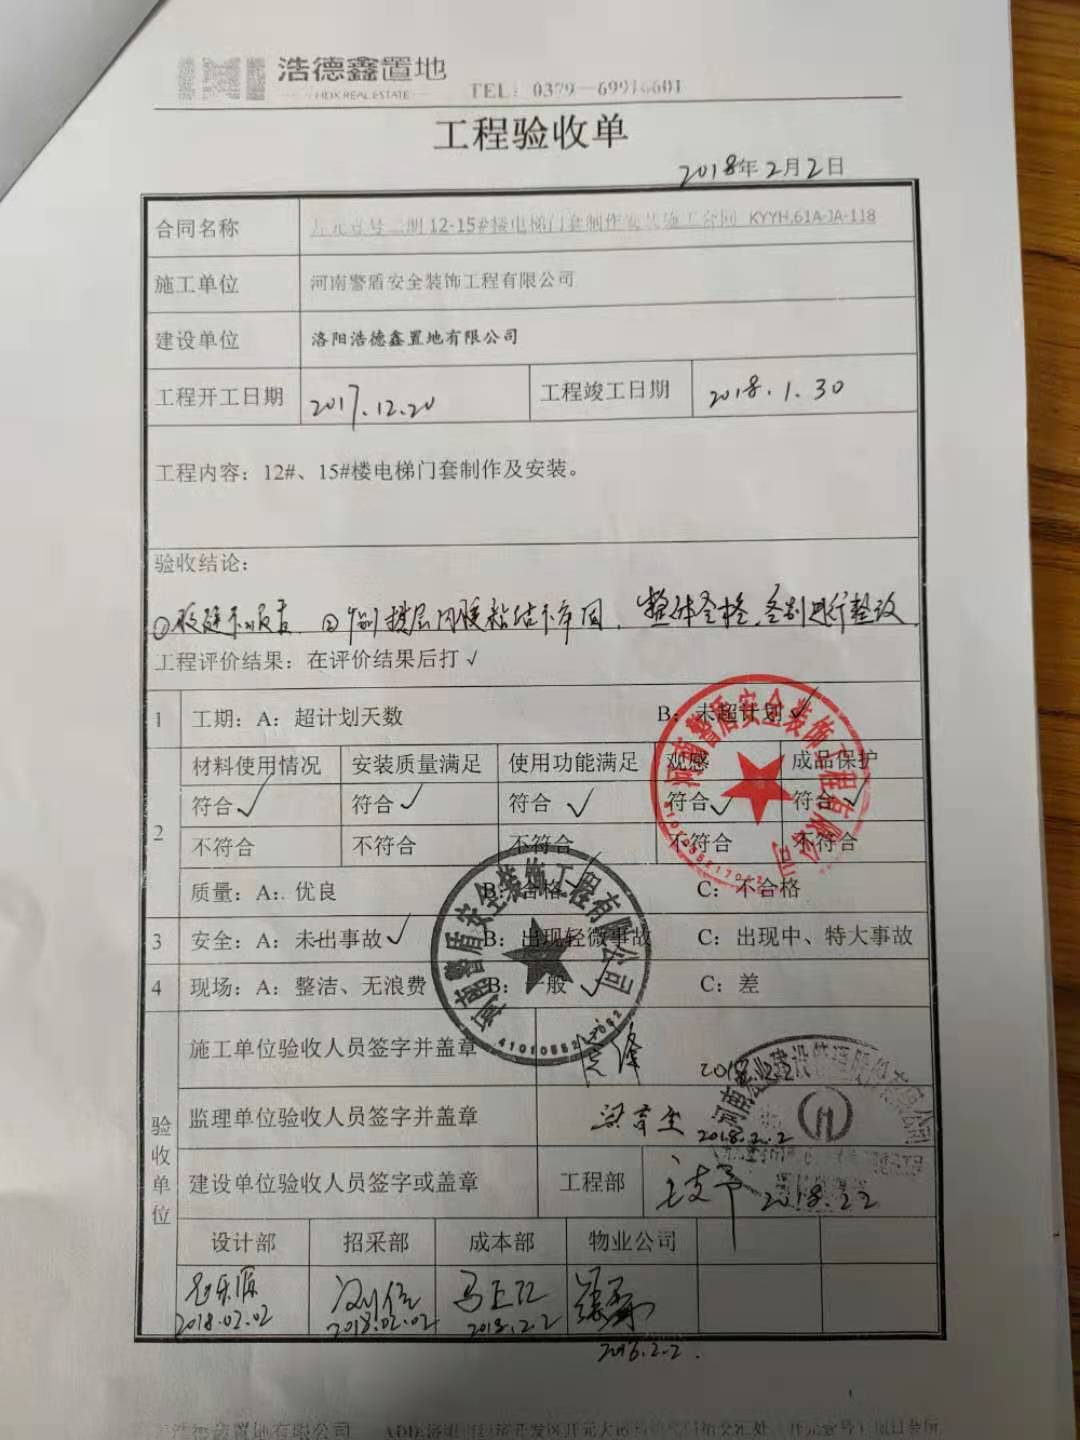 浩德鑫置地
HDX REAL ESTATE
TEL: 0379-69916601
工程验收单
2018年2月2日
合同名称 开元壹号二期12-15#楼电梯门套制作安装施工合同 KYYH.61A-JA-118
施工单位 河南警盾安全装饰工程有限公司
建设单位 洛阳浩德鑫置地有限公司
工程开工日期 2017.12.20 工程竣工日期 2018.1.30
工程内容：12#、15#楼电梯门套制作及安装。
验收结论：
① ② 个别楼层 粘结不牢固，整体合格，个别进行整改
工程评价结果：在评价结果后打√
1 工期：A：超计划天数 B：未超计划√
2 材料使用情况 安装质量满足 使用功能满足 观感 成品保护
符合√ 符合√ 符合√ 符合√ 符合√
不符合 不符合 不符合 不符合 不符合
质量：A：优良 B：合格√ C：不合格
3 安全：A：未出事故√ B：出现轻微事故 C：出现中、特大事故
4 现场：A：整洁、无浪费 B：一般√ C：差
河南警盾安全装饰工程有限公司
河南警盾安全装饰工程有限公司
验收单位
施工单位验收人员签字并盖章 2018.2.2
监理单位验收人员签字并盖章 2018.2.2
建设单位验收人员签字或盖章 工程部 2018.2.2
设计部 招采部 成本部 物业公司
2018.02.02 2018.02.02 2018.2.2
2018.2.2.
浩德鑫置地有限公司